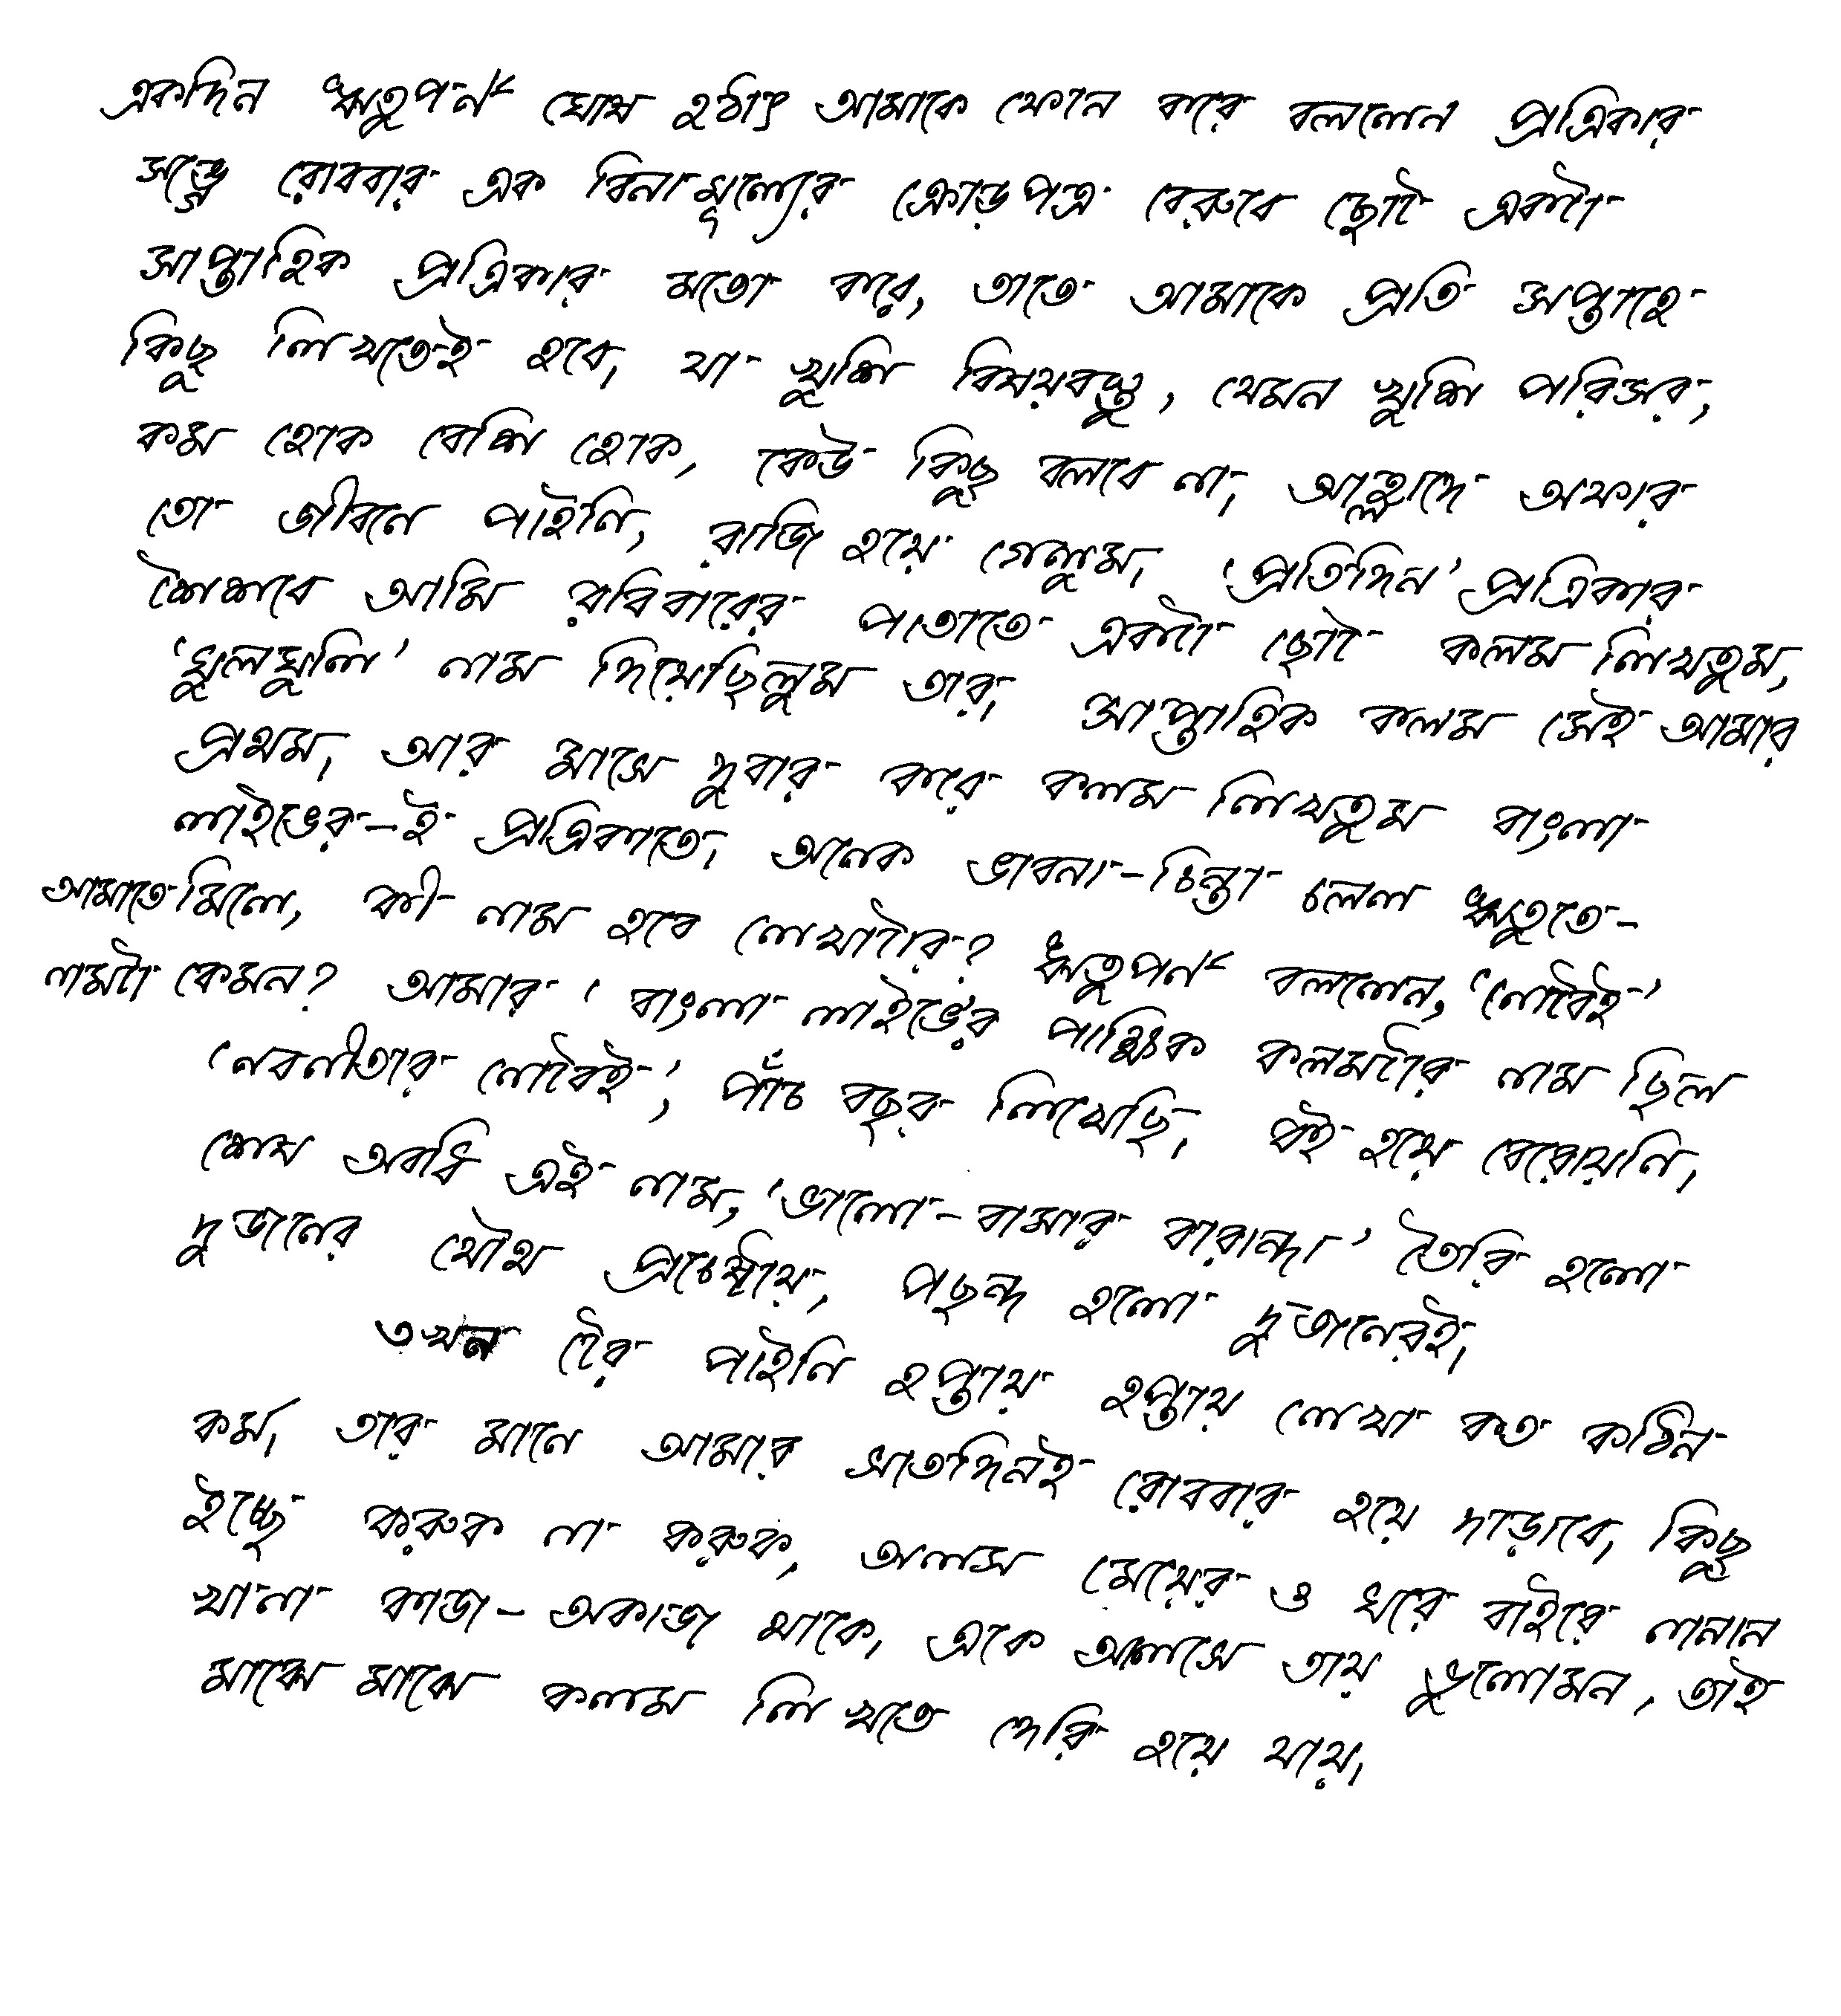 একদিন ঋতুপর্ণ ঘোষ হঠাৎ আমাকে ফোন করে বললেন প্রত্রিকার
সঙ্গে রোববার এক বিনামূল্যের ক্রোড়পত্র বেরুবে ছোট একটা
সাপ্তাহিক প্রত্রিকার মতো করে, তাতে আমাকে প্রতি সপ্তাহে
কিছু লিখতেই হবে। যা খুশি বিষয়বস্তু, যেমন খুশি পরিসর,
কম হোক বেশি হোক, কেউ কিছু বলবে না। আহ্লাদে অফার
তো জীবনে পাইনি, রাজি হয়ে গেলুম। ‘প্রতিদিন’ প্রত্রিকার
শৈশবে আমি রবিবারের পাতাতে একটা ছোট কলম লিখতুম,
‘ঘুলঘুলি’ নাম দিয়েছিলুম তার। সাপ্তাহিক কলম সেই আমার
প্রথম। আর মাসে দুবার করে কলম লিখতুম বাংলা
লাইভের-ই প্রত্রিকাতে। অনেক ভাবনা-চিন্তা চলল ঋতুতে-
আমাতে মিলে, কী নাম হবে লেখাটার? ঋতুপর্ণ বললেন, ‘নোটবই’
নামটা কেমন? আমার ‘বাংলা লাইভের পাক্ষিক কলমটার নাম ছিল
‘নবনীতার নোটবই’, পাঁচ বছর লিখেছি। বই হয়ে বেরোয়নি।
শেষ অবধি এই নাম, ‘ভালো-বাসার বারান্দা’ তৈরি হলো
দুজনের যৌথ প্রচেষ্টায়, পছন্দ হলো দুজনেরই।
তখন টের পাইনি হপ্তায় হপ্তায় লেখা কত কঠিন
কর্ম। তার মানে আমার সাতদিনই রোববার হয়ে দাড়াবে। কিছু
ইচ্ছে করুক না করুক, অলস মেয়ের ও ঘরে বাইরে নানান
খানা কাজ-অকাজ থাকে। একে আলসে তায় ভুলোমন, তাই
মাঝে মাঝে কলম লিখতে দেরি হয়ে যায়।